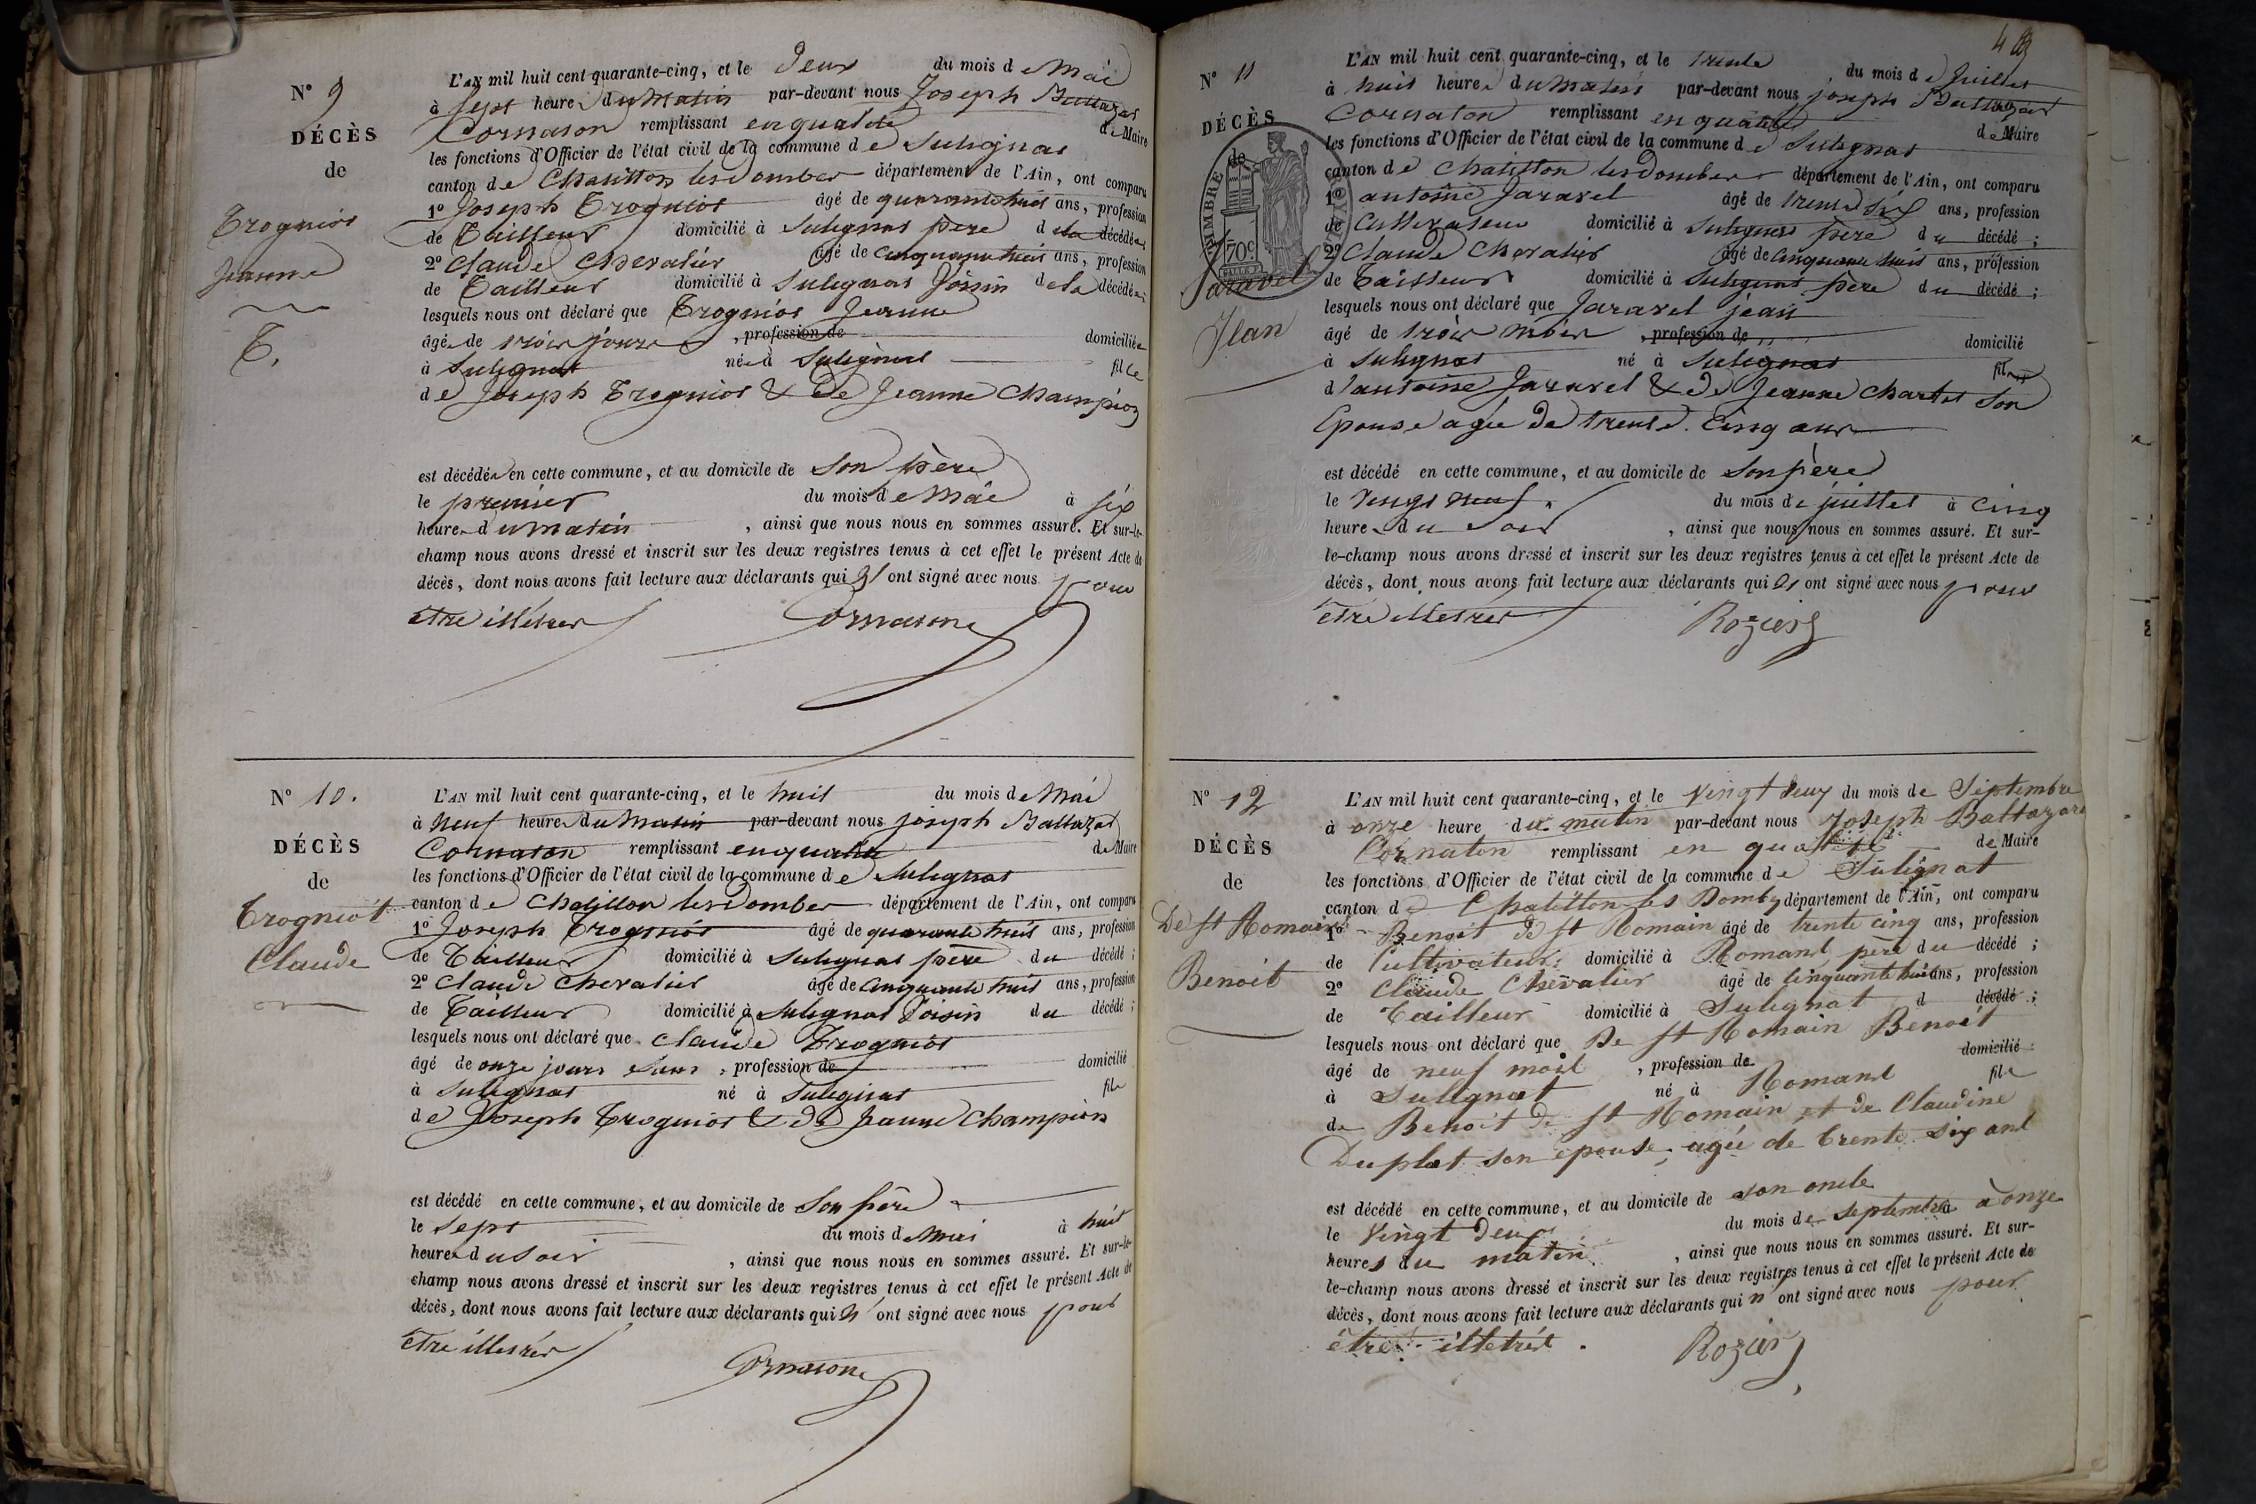 N° 9
DÉCÈS
de
Trogniot
Jeanne
T.
L'AN mil huit cent quarante-cinq, et le Deux du mois de Mai
à Sept heures du Matin par-devant nous Joseph Baltazar
Cornaton remplissant en qualité de Maire
les fonctions d'Officier de l'état civil de la commune de Sulignat
canton de Chatillon les Dombes département de l'Ain, ont comparu
1° Joseph Trogniot âgé de quarante huit ans, profession
de Tailleur domicilié à Sulignat père de la décédée;
2° Claude Chevalier âgé de Cinquante huit ans, profession
de Tailleur domicilié à Sulignat Voisin de la décédée;
lesquels nous ont déclaré que Trogniot Jeanne
âgée de trois jours, profession de domiciliée
à Sulignat née à Sulignat fille
de Joseph Trogniot & De Jeanne Champion
est décédée en cette commune, et au domicile de Son père
le premier du mois de Mai à six
heures du matin, ainsi que nous nous en sommes assuré. Et sur-le-
champ nous avons dressé et inscrit sur les deux registres tenus à cet effet le présent Acte de
décès, dont nous avons fait lecture aux déclarants qui n' ont signé avec nous pour
être illétrés Cornaton
N° 10.
DÉCÈS
de
Trogniot
Claude
L'AN mil huit cent quarante-cinq, et le huit du mois de Mai
à Neuf heures du Matin par-devant nous joseph Baltazar
Cornaton remplissant en qualité de Maire
les fonctions d'Officier de l'état civil de la commune de Sulignat
canton de Chatillon les Dombes département de l'Ain, ont comparu
1° Joseph Trogniot âgé de quarante huit ans, profession
de Tailleur domicilié à Sulignat père du décédé;
2° Claude Chevalier âgé de Cinquante huit ans, profession
de Tailleur domicilié à Sulignat Voisin du décédé;
lesquels nous ont déclaré que Claude Trogniot
âgé de onze jours, profession de domicilié
à Sulignat né à Sulignat fils
de Joseph Trogniot & De Jeanne Champion
est décédé en cette commune, et au domicile de Son père
le Sept du mois de Mai à huit
heures du soir, ainsi que nous nous en sommes assuré. Et sur-le-
champ nous avons dressé et inscrit sur les deux registres tenus à cet effet le présent Acte de
décès, dont nous avons fait lecture aux déclarants qui n' ont signé avec nous pour
être illétrés Cornaton
N° 11
DÉCÈS
de
TIMBRE
70c
Jaravel
Jean
L'AN mil huit cent quarante-cinq, et le trente du mois de Juillet
à huit heures du Matin par-devant nous joseph Baltazar
Cornaton remplissant en qualité de Maire
les fonctions d'Officier de l'état civil de la commune de Sulignat
canton de Chatillon les Dombes département de l'Ain, ont comparu
1° antoine Jaravel âgé de trente six ans, profession
de Cultivateur domicilié à Sulignat père du décédé;
2° Claude Chevalier âgé de Cinquante huit ans, profession
de Tailleur domicilié à Sulignat père du décédé;
lesquels nous ont déclaré que Jaravel jean
âgé de trois mois, profession de domicilié
à Sulignat né à Sulignat fils
d'antoine Jaravel & De Jeanne Chartet Son
Epouse agée de trente Cinq ans
est décédé en cette commune, et au domicile de Son père
le Vingt neuf du mois de juillet à Cinq
heures du Soir, ainsi que nous nous en sommes assuré. Et sur-
le-champ nous avons dressé et inscrit sur les deux registres tenus à cet effet le présent Acte de
décès, dont nous avons fait lecture aux déclarants qui n' ont signé avec nous pour
être illetrés Rozier
N° 12
DÉCÈS
de
De St Romain
Benoit
L'AN mil huit cent quarante-cinq, et le vingt deux du mois de Septembre
à onze heure du matin par-devant nous Joseph Baltazard
Cornaton remplissant en qualité de Maire
les fonctions d'Officier de l'état civil de la commune de Sulignat
canton de Chatillon les Dombes département de l'Ain, ont comparu
1° Benoit de St Romain âgé de trente cinq ans, profession
de Cultivateur domicilié à Romans père du décédé;
2° Claude Chevalier âgé de Cinquante huit ans, profession
de Tailleur domicilié à Sulignat d décédé;
lesquels nous ont déclaré que De St Romain Benoit
âgé de neuf mois, profession de domicilié
à Sulignat né à Romans fils
de Benoit de St Romain et de Claudine
Duplat son épouse, agée de trente six ans
est décédé en cette commune, et au domicile de son oncle
le Vingt deux du mois de septembre à onze
heures du matin, ainsi que nous nous en sommes assuré. Et sur-
le-champ nous avons dressé et inscrit sur les deux registres tenus à cet effet le présent Acte de
décès, dont nous avons fait lecture aux déclarants qui n' ont signé avec nous pour
être illetrés. Rozier